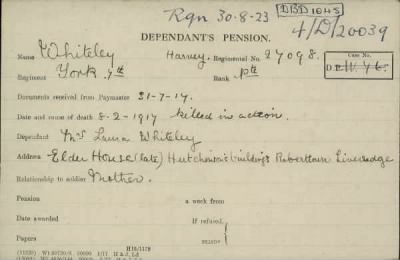 Rqn 30-8-23
DBD 1045
4/D/20039
DEFENDANT'S PENSION.
Name Whiteley Harvey. Regimental No. 27098.
Regiment York 7th Rank Pte
Case No.
Documents received from Paymaster 31-7-17.
Date and cause of death 8-2-1917 killed in action.
Dependant Mrs Laura Whiteley
Address Elder House (late) Hutchinson's buildings Roberttown Liversedge
Relationship to soldier Mother.
Pension a week from
Date awarded If refused,
Papers reason
H16/1178